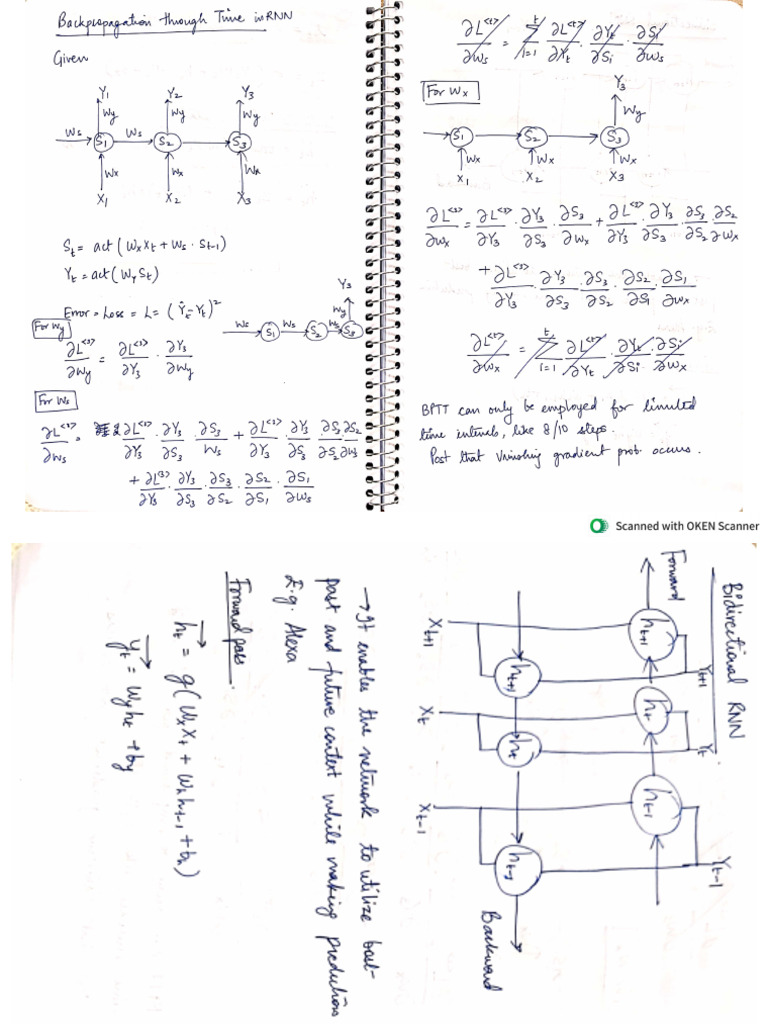 Backpropagation through Time in RNN
Given
Y1 Y2 Y3
Wy Wy Wy
Ws Ws
S1 S2 S3
Wx Wx Wx
X1 X2 X3
St = act (WxXt + Ws · St-1)
Yt = act (Wy St)
Error = Loss = L = (Ŷt - Yt)²
Y3
Wy
Ws S1 Ws S2 Ws S3
For Wy
∂L<3>/∂Wy = ∂L<3>/∂Y3 · ∂Y3/∂Wy
For Ws
∂L<3>/∂Ws = ∂L<3>/∂Y3 · ∂Y3/∂S3 · ∂S3/Ws + ∂L<3>/∂Y3 · ∂Y3/∂S3 · ∂S3/∂S2 · ∂S2/∂Ws
+ ∂L<3>/∂Y3 · ∂Y3/∂S3 · ∂S3/∂S2 · ∂S2/∂S1 · ∂S1/∂Ws
∂L<t>/∂Ws = Σ t i=1 ∂L<t>/∂Yt · ∂Yt/∂Si · ∂Si/∂Ws
For Wx
Y3
Wy
S1 S2 S3
Wx Wx Wx
X1 X2 X3
∂L<3>/∂Wx = ∂L<3>/∂Y3 · ∂Y3/∂S3 · ∂S3/∂Wx + ∂L<3>/∂Y3 · ∂Y3/∂S3 · ∂S3/∂S2 · ∂S2/∂Wx
+ ∂L<3>/∂Y3 · ∂Y3/∂S3 · ∂S3/∂S2 · ∂S2/∂S1 · ∂S1/∂Wx
∂L<t>/∂Wx = Σ t i=1 ∂L<t>/∂Yt · ∂Yt/∂Si · ∂Si/∂Wx
BPTT can only be employed for limited
time intervals, like 8/10 steps.
Post that Vanishing gradient prob. occurs.
Scanned with OKEN Scanner
Bidirectional RNN
Yt+1 Yt Yt-1
Forward ht+1 ht ht-1
ht+1 ht ht-1 Backward
Xt+1 Xt Xt-1
→ It enables the network to utilize both
past and future context while making predictions
E.g. Alexa
Forward pass
ht = g(WxXt + Whht-1 + bh)
yt = Wyht + by